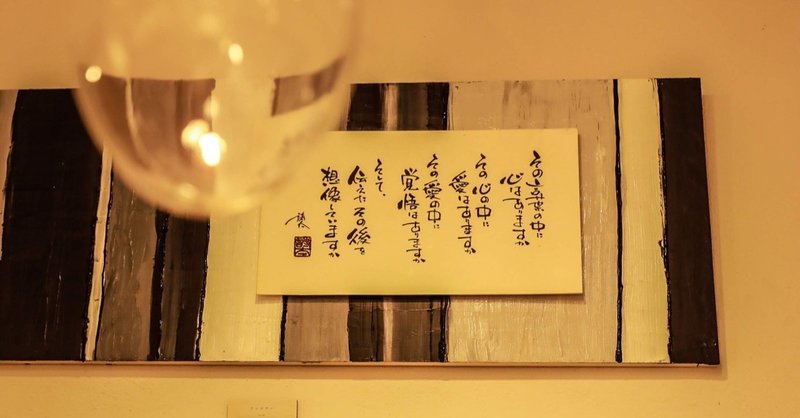 その言葉の中に
心はありますか
その心の中に
愛はありますか
その愛の中に
覚悟はありますか
そして、
伝えたその後を
想像していますか